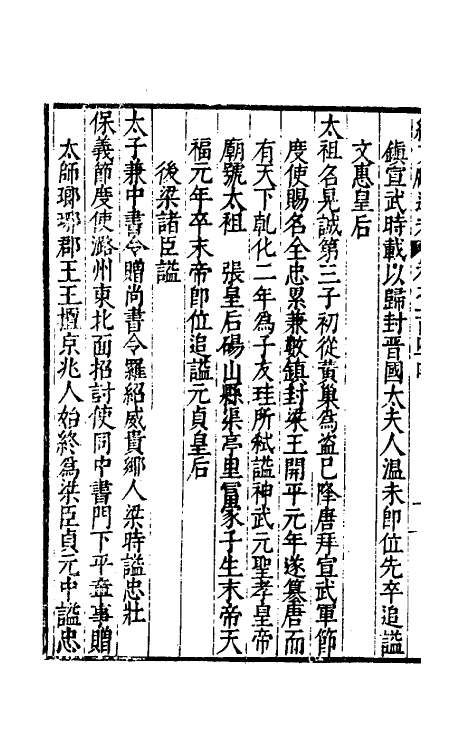 鎮宣武時載以歸封晉國太夫人温未即位先卒追諡
文惠皇后
太祖名晃誠第三子初從黄巢為盗已降唐拜宣武軍節
度使賜名全忠累兼數鎮封梁王開平元年遂簒唐而
有天下乾化二年為子友珪所弑諡神武元聖孝皇帝
廟號太祖　張皇后碭山縣渠亭里富家子生末帝天
福元年卒末帝即位追諡元貞皇后
後梁諸臣諡
太子兼中書令贈尚書令羅紹威貴鄉人梁時諡忠壯
保義節度使潞州東北面招討使同中書門下平章事贈
太師瑯琊郡王王檀京兆人始終為梁臣貞元中諡忠